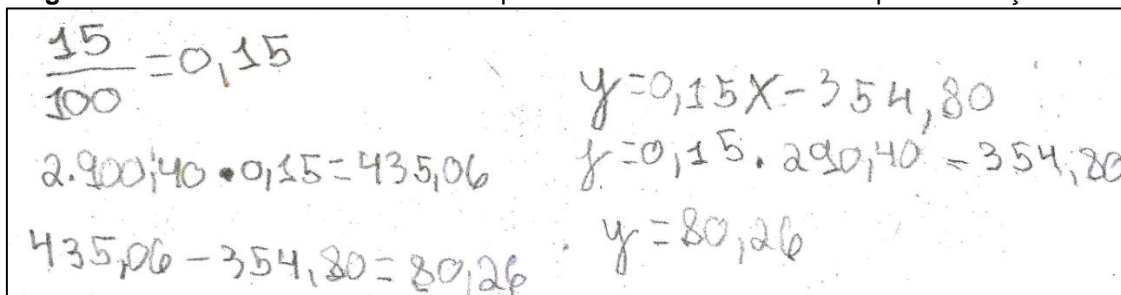 15/100 = 0,15
2.900,40 • 0,15 = 435,06
435,06 - 354,80 = 80,26
y = 0,15X - 354,80
y = 0,15 . 290,40 - 354,80
y = 80,26